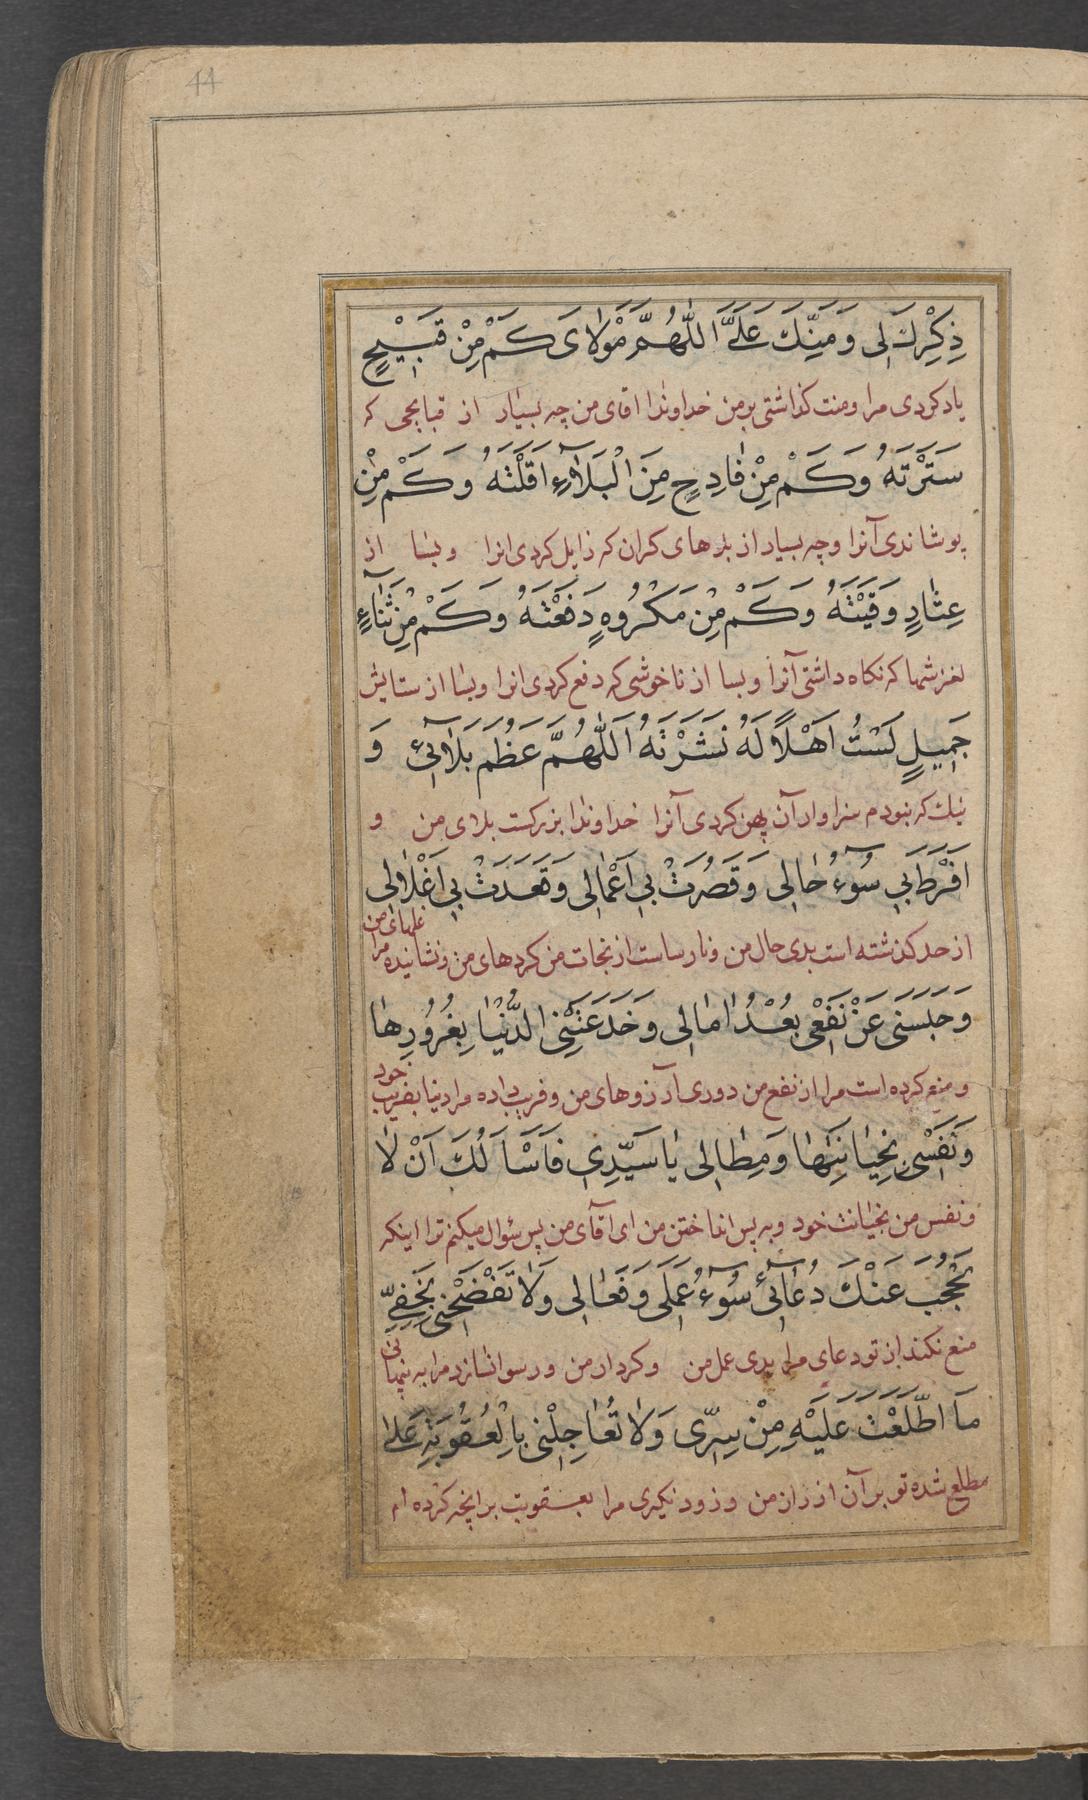 44
ذِكْرِكَ لِی وَ مَنِّكَ عَلَیَّ اَللّٰهُمَّ مَوْلَایَ كَمْ مِنْ قَبِیْحٍ
یاد کردی مرا و منت کذاشتی بر من خداوندا اقای من چه بسیار از قبایحی که
سَتَرْتَهُ وَ كَمْ مِنْ فَادِحٍ مِنَ الْبَلَآءِ اَقَلْتَهُ وَ كَمْ مِنْ
پوشاندی آنرا و چه بسیار از بلاهای کران که زایل کردی انرا و بسا از
عِثَارٍ وَقَیْتَهُ وَ كَمْ مِنْ مَكْرُوهٍ دَفَعْتَهُ وَ كَمْ مِنْ ثَنَآءٍ
لغزشها که نکاه داشتی آنرا و بسا از ناخوشی که دفع کردی انرا و بسا از ستایش
جَمِیلٍ لَسْتُ اَهْلًا لَهُ نَشَرْتَهُ اَللّٰهُمَّ عَظُمَ بَلَآئِی وَ
نیك که نبودم سزاوار آن پهن کردی آنرا خداوندا بزرکست بلای من و
اَفْرَطَ بِی سُوٓءُ حَالِی وَ قَصُرَتْ بِی اَعْمَالِی وَ قَعَدَتْ بِی اَغْلَالِی
از حد کذشته است بدی حال من و نارساست از نجات من کردهای من و نشانیده مرا غلهای من
وَ حَبَسَنِی عَنْ نَفْعِی بُعْدُ اٰمَالِی وَ خَدَعَتْنِی الدُّنْیَا بِغُرُورِهَا
و منع کرده است مرا از نفع من دوری آرزوهای من و فریب داده مرا دنیا بفریب خود
وَ نَفْسِی بِخِیَانَتِهَا وَ مِطَالِی یَا سَیِّدِی فَاَسْاَلُكَ اَنْ لَا
و نفس من بخیانت خود و به پس انداختن من ای آقای من پس سؤال میکنم ترا اینکه
یَحْجُبَ عَنْكَ دُعَآئِی سُوٓءُ عَمَلِی وَ فَعَالِی وَ لَا تَفْضَحْنِی بِخَفِیِّ
منع نکند از تو دعای مرا بدی عمل من و کردار من و رسوا نسازد مرا به پنهانی
مَا اطَّلَعْتَ عَلَیْهِ مِنْ سِرِّی وَ لَا تُعَاجِلْنِی بِالْعُقُوبَةِ عَلَی
مطلع شده تو بر آن از راز من و زود نکیری مرا بعقوبت بر انچه کرده ام